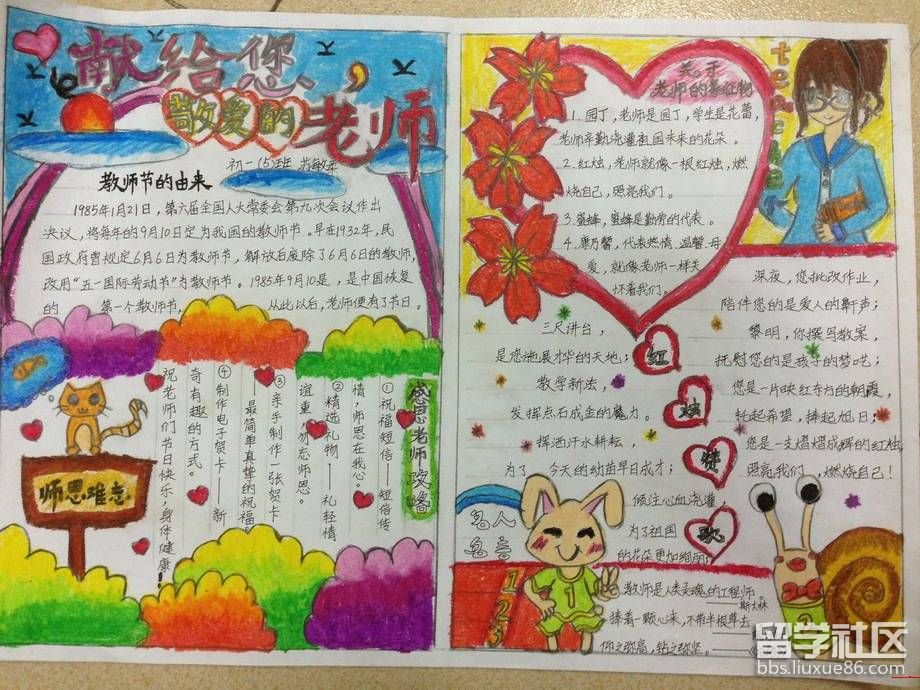 献给您、
敬爱的老师
初一(5)班
教师节的由来
1985年1月21日，第六届全国人大常委会第九次会议作出
决议，将每年的9月10日定为我国的教师节。早在1932年，民
国政府曾规定6月6日为教师节，解放后废除了6月6日的教师节，
改用“五一国际劳动节”为教师节。1985年9月10是，是中国恢复
的 第一个教师节， 从此以后，老师便有了节日。
感恩老师攻略
①祝福短信——短信传
情，师恩在我心。
②精选礼物—— 礼轻情
谊重，勿忘师恩。
③亲手制作一张贺卡
——最简单真挚的祝福
④制作电子贺卡—— 新
奇有趣的方式。
祝老师们节日快乐，身体健康！
师恩难忘
关于
老师的象征物
1.园丁，老师是园丁，学生是花蕾，
老师辛勤浇灌祖国未来的花朵。
2.红烛，老师就像一根红烛，燃
烧自己，照亮我们。
3.蜜蜂，蜜蜂是勤劳的代表。
4.康乃馨，代表热情，温馨母
爱，就像老师一样关
怀着我们。
teacher
红烛赞歌
三尺讲台，
是您施展才华的天地；
教学新法，
发挥点石成金的魔力。
挥洒汗水耕耘，
为了 今天的幼苗早日成才；
倾注心血浇灌，
为了祖国
的花朵更加绚丽；
深夜，您批改作业，
陪伴您的是爱人的鼾声；
黎明，你撰写教案，
抚慰您的是孩子的梦呓；
您是一片映红东方的朝霞，
托起希望，捧起旭日；
您是一支熠熠成辉的红烛，
照亮我们，燃烧自己！
名人
名言
1
2
3
1
教师是人类灵魂的工程师。
——斯大林
捧着一颗心来，不带半根草去
仰之弥高，钻之弥坚。
留学社区
bbs.liuxue86.com